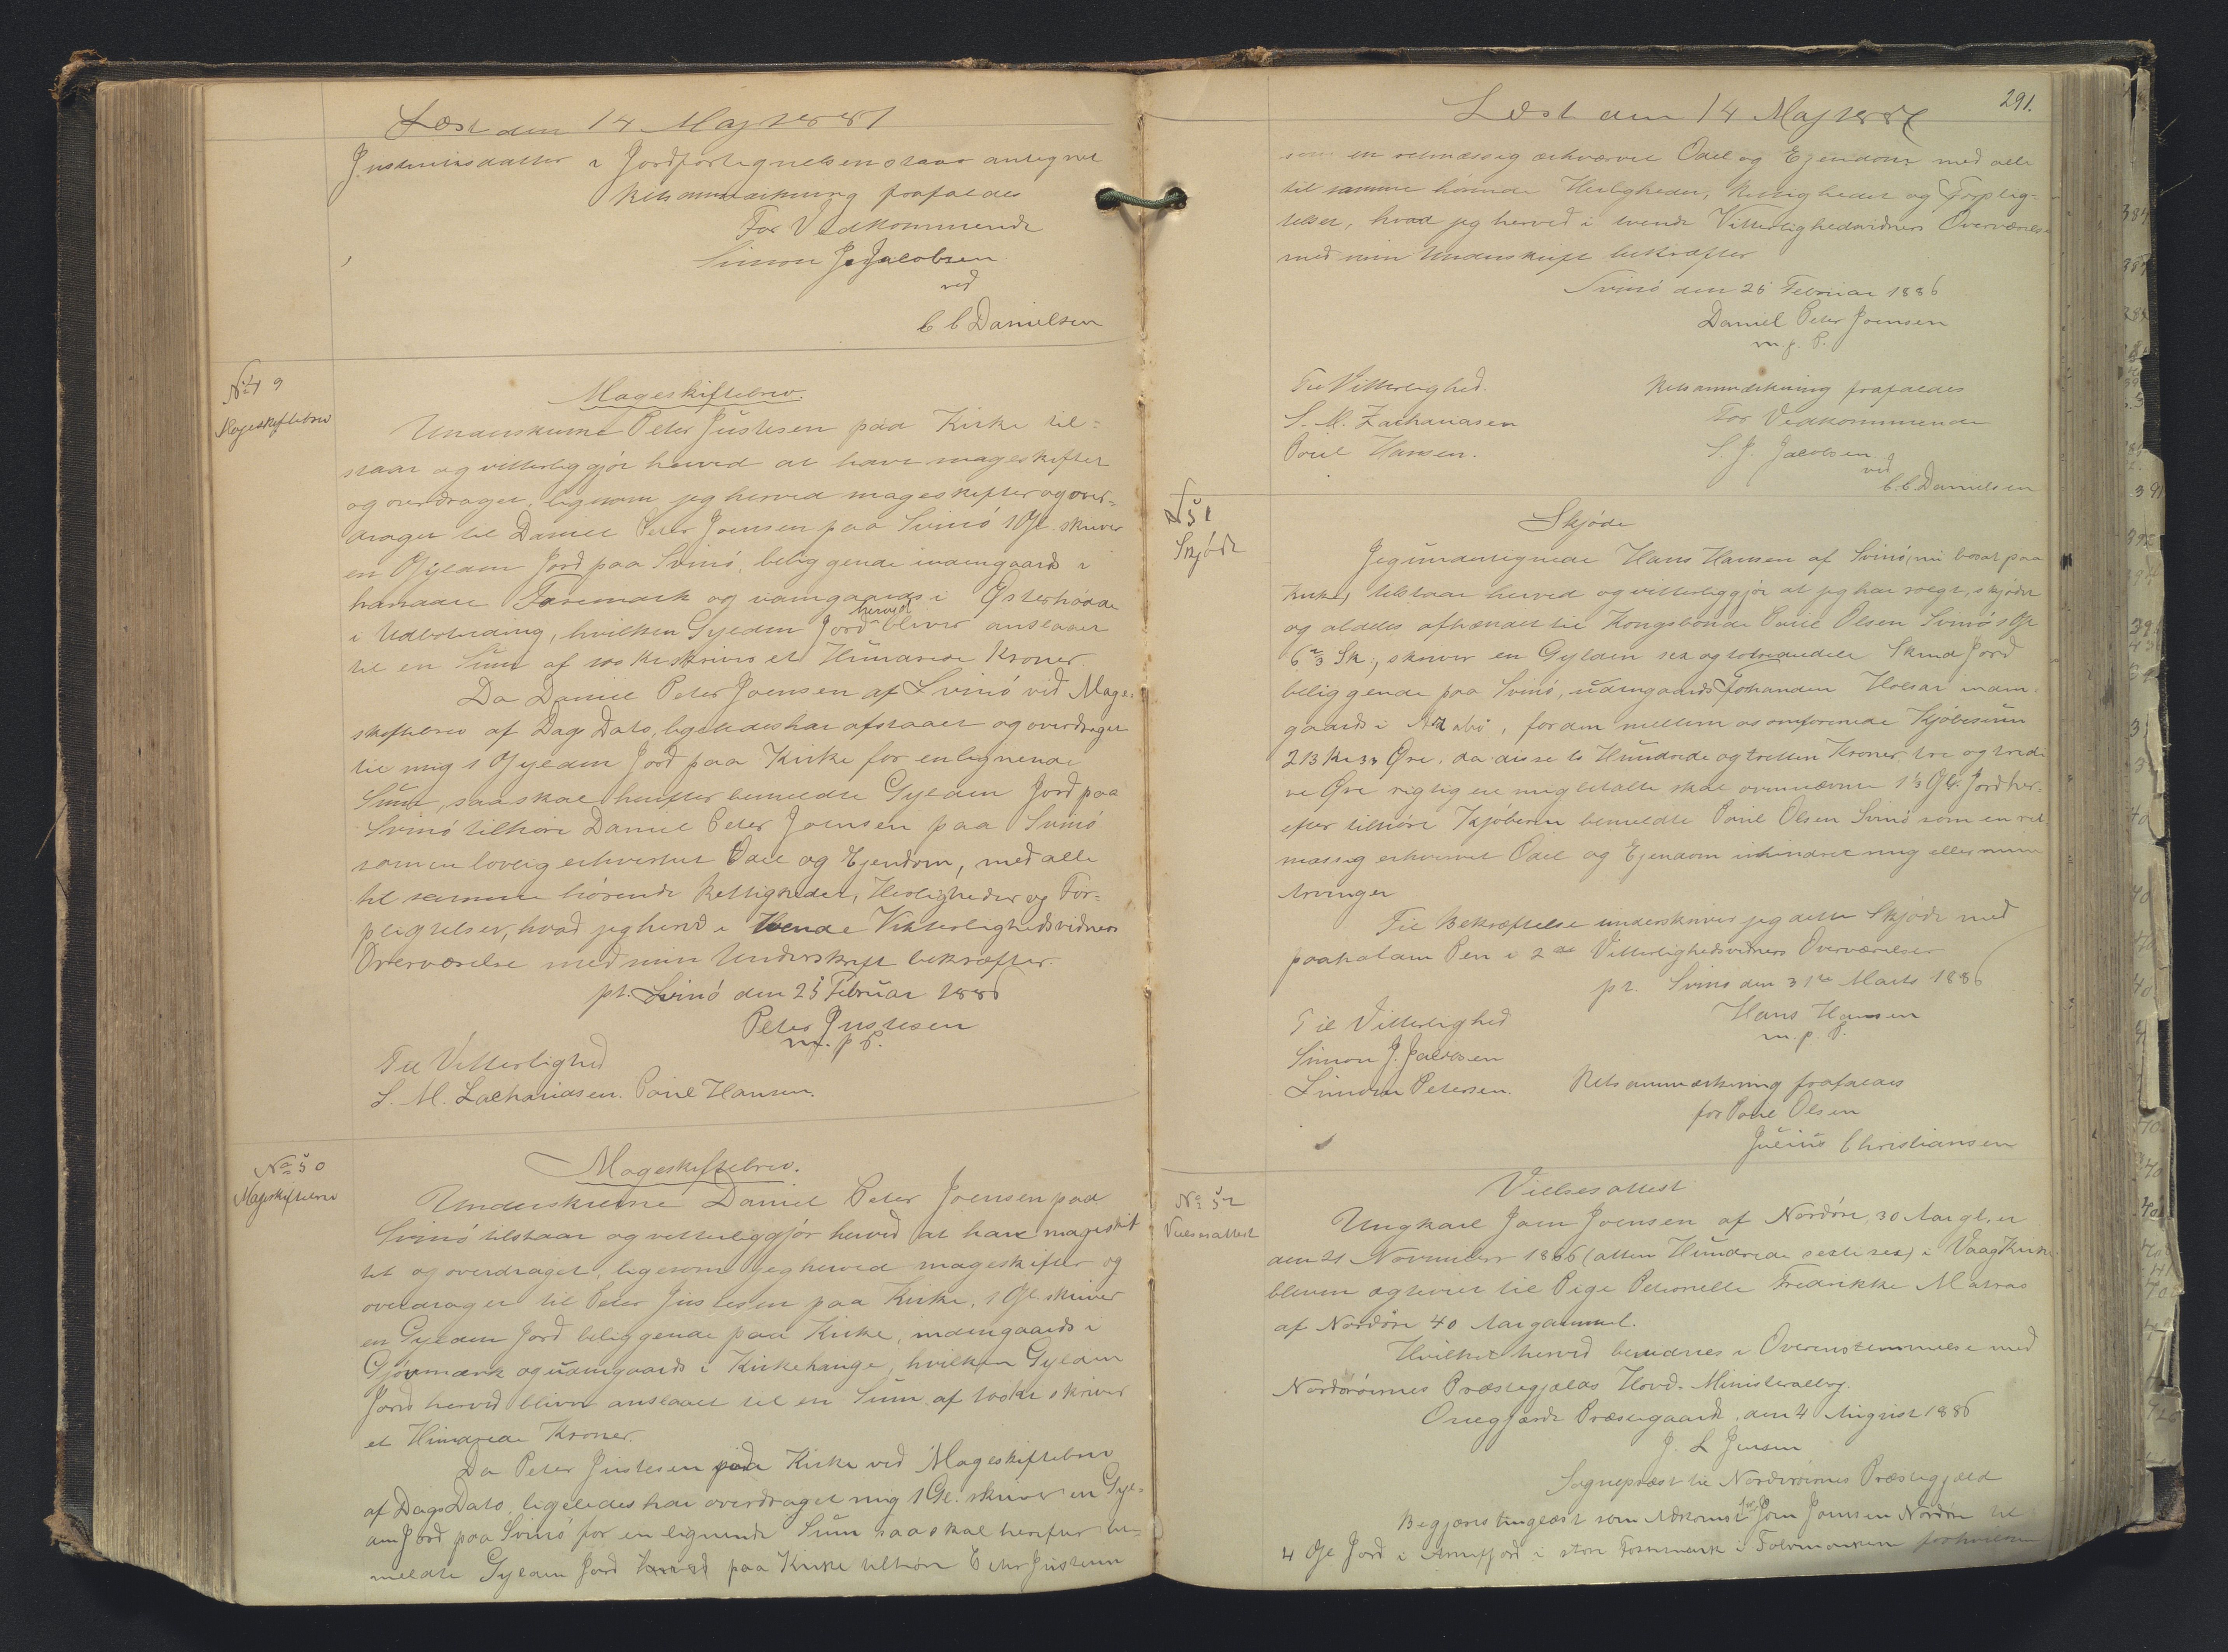 Læst den 14 Maj 1887
Justinusdatter i Jordfortegnelsen staar antegnet
Retsanmærkning frafaldes
For Vedkommende
Simon J. Jacobsen
ved
C C Danielsen
No 49
Mageskiftebrev
Mageskiftebrev.
Underskrevne Peter Justesen paa Kirke til=
staar og vitterliggjör herved at have mageskiftet
og overdraget, ligesom jeg herved mageskifter og over=
drager til Daniel Peter Joensen paa Svinö 1 Gl. skriver
en Gylden Jord paa Svinö, beliggende indengaards i
Faremark og udengaards i Østerhödde
i Udbolueding, hvilken Gylden Jord herved bliver anslaaet
til en Sum af 100 Kr skriver et Hundrede Kroner.
Da Daniel Peter Joensen af Svinö ved Mage=
skiftebrev af Dags Dato, ligeledes har afstaaet og overdraget
til mig 1 Gylden Jord paa Kirke for en lignende
Sum, saa skal herefter bemeldte Gylden Jord paa
Svinö tilhöre Daniel Peter Joensen paa Svinö
som en lovlig erhvervet Odel og Ejendom, med alle
til samme hörende Rettigheder, Herligheder og For=
pligtelser, hvad jeg herved i tvende Vitterlighedsvidners
Overværelse med min Underskrift bekræfter.
pt. Svinö den 25 Februar 1886
Peter Justesen
m. p. P.
Til Vitterlighed
S. M. Zachariasen. Poul Hansen.
No 50
Mageskiftebrev
Mageskiftebrev.
Underskrevne Daniel Peter Joensen paa
Svinö tilstaar og vitterliggjör herved at have mageskif
tet og overdraget, ligesom jeg herved mageskifter og
overdrager til Peter Justesen paa Kirke, 1 Gl. skriver
en Gylden Jord beliggende paa Kirke, indengaards i
Gjovmark og udengaards i Kirkehauge, hvilken Gylden
Jord herved bliver anslaaet til en Sum af 100 Kr skriver
et Hundrede Kroner.
Da Peter Justesen paa Kirke ved Mageskiftebrev
af Dags Dato, ligeledes har overdraget mig 1 Gl. skriver en Gyl=
den Jord paa Svinö for en lignende Sum saa skal herefter be=
meldte Gylden Jord paa Kirke tilhöre Peter Justesen
291.
Læst den 14 Maj 1887
som en retmæssig erhvervet Odel og Ejendom med alle
til samme hörende Herligheder, Rettigheder og Forplig=
telser, hvad jeg herved i tvende Vitterlighedsvidners Overværelse
med min Underskrift bekræfter
Svinö den 25 Februar 1886
Daniel Peter Joensen
m. p. P.
Til Vitterlighed.
S. M. Zachariasen
Poul Hansen.
Retsanmærkning frafaldes
For Vedkommende
S. J. Jacobsen
ved
C. C. Danielsen
No 51
Skjöde
Skjöde
Jeg undertegnede Hans Hansen af Svinö, nu bosat paa
Kirke, tilstaar herved og vitterliggjör at jeg har solgt, skjödet
og aldeles afhændet til Kongsbonde Poul Olsen Svinö 1 Gl
6 2/3 Sk., skriver en Gylden sex og totrediedele Skind Jord
beliggende paa Svinö, udengaards Holsar inden=
gaards i, for den mellem os omforenede Kjöbesum
213 Kr 33 Øre, da disse to Hundrede og tretten Kroner, tre og tredi
ve Øre rigtig ere mig betalte skal ovennævnte 1 1/3 Gl. Jord her=
efter tilhöre Kjöberen bemeldte Poul Olsen Svinö som en ret
mæssig erhvervet Odel og Ejendom uhindret mig eller mine
Arvinger
Til Bekræftelse underskriver jeg dette Skjöde med
paaholden Pen i 2de Vitterlighedsvidners Overværelse
pt. Svinö den 31te Marts 1886
Hans Hansen
m. p. P.
Til Vitterlighed
Simon J. Jacobsen
Simon Petersen.
Retsanmærkning frafaldes
for Poul Olsen
Julius Christiansen
No 52
Vielsesattest
Vielsesattest
Ungkarl Joen Joensen af Nordöre, 30 Aar gl, er
den 21 November 1866 (atten Hundrede sexti sex) i Vaag Kirke
bleven ægteviet til Pige Petronelle Fredrikke Matras
af Nordöre 40 Aar gammel.
Hvilket herved bevidnes i Overensstemmelse med
Norderöernes Præstegjælds Hoved-Ministerialbog.
Onegjærde Præstegaard, den 4 August 1886
J. L Jensen
Sognepræst til Norderöernes Præstegjæld
Begjæres tinglæst som Adkomst for Joen Joensen Nordöre til
4 Gl Jord i Arnefjord i store i